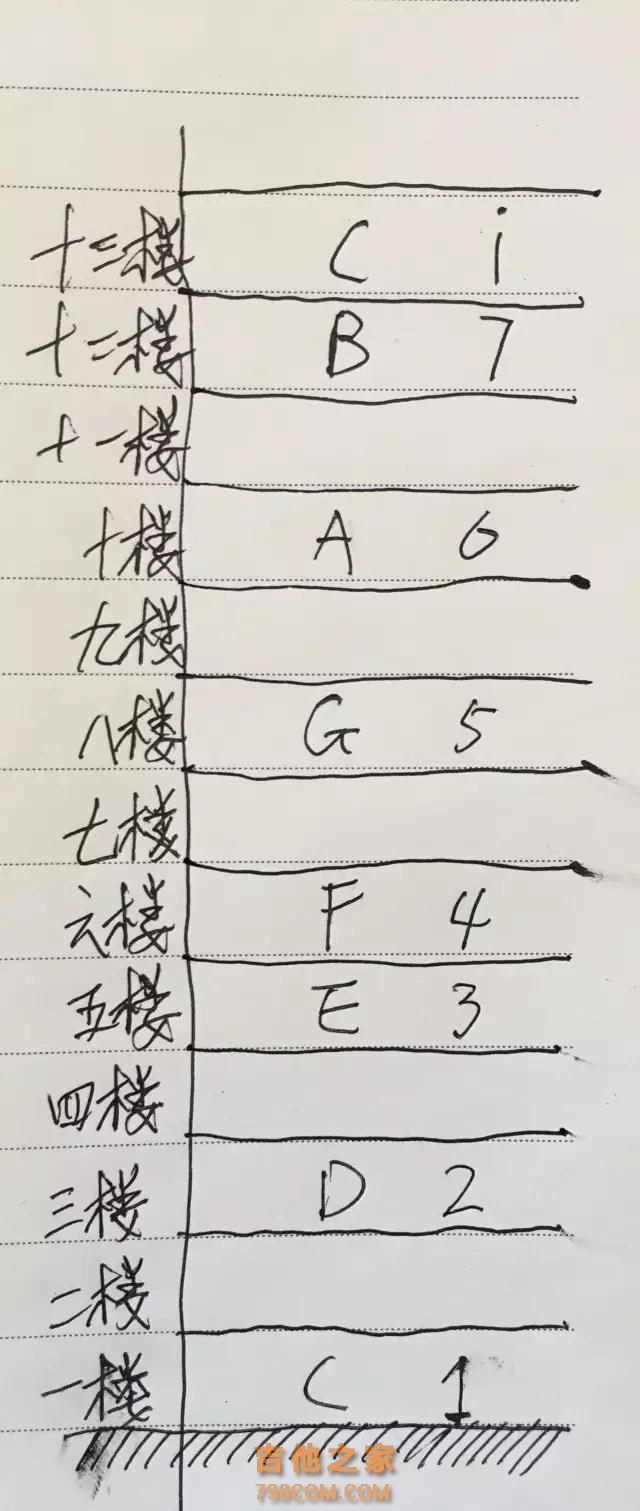 十三楼 C i
十二楼 B 7
十一楼
十楼 A 6
九楼
八楼 G 5
七楼
六楼 F 4
五楼 E 3
四楼
三楼 D 2
二楼
一楼 C 1
吉他之家
798COM.COM